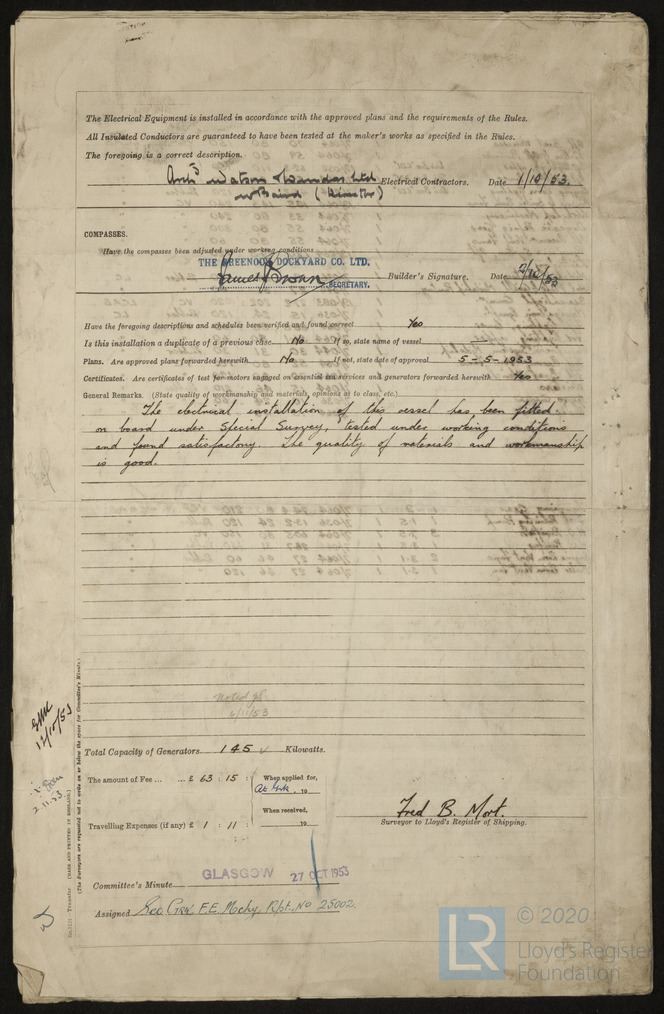 The Electrical Equipment is installed in accordance with the approved plans and the requirements of the Rules.
All Insulated Conductors are guaranteed to have been tested at the maker's works as specified in the Rules.
The foregoing is a correct description.
Watson Ltd Electrical Contractors. Date 1/10/53.
Baird (Director)
COMPASSES.
Have the compasses been adjusted under working conditions
THE GREENOCK DOCKYARD CO. LTD.
James Brown SECRETARY. Builder's Signature. Date
Have the foregoing descriptions and schedules been verified and found correct Yes
Is this installation a duplicate of a previous case No If so, state name of vessel
Plans. Are approved plans forwarded herewith No If not, state date of approval 5-5-1953
Certificates. Are certificates of test for motors engaged on essential sea services and generators forwarded herewith Yes
General Remarks. (State quality of workmanship and materials, opinions as to class, etc.)
The electrical installation of this vessel has been fitted
on board under Special Survey, tested under working conditions
and found satisfactory. The quality of materials and workmanship
is good.
Noted
Total Capacity of Generators 145 Kilowatts.
The amount of Fee ... ... £ 63 : 15 : When applied for,
19
When received,
Travelling Expenses (if any) £ 1 : 11 : 19
Fred B. Mort.
Surveyor to Lloyd's Register of Shipping.
GLASGOW 27 OCT 1953
Committee's Minute
Assigned See F.E. Mchy. Rpt. No 25002.
(The Surveyors are requested not to write on or below the space for Committee's Minute.)
Transfer (MADE AND PRINTED IN ENGLAND.)
12/10/53
LR
© 2020
Lloyd's Register
Foundation